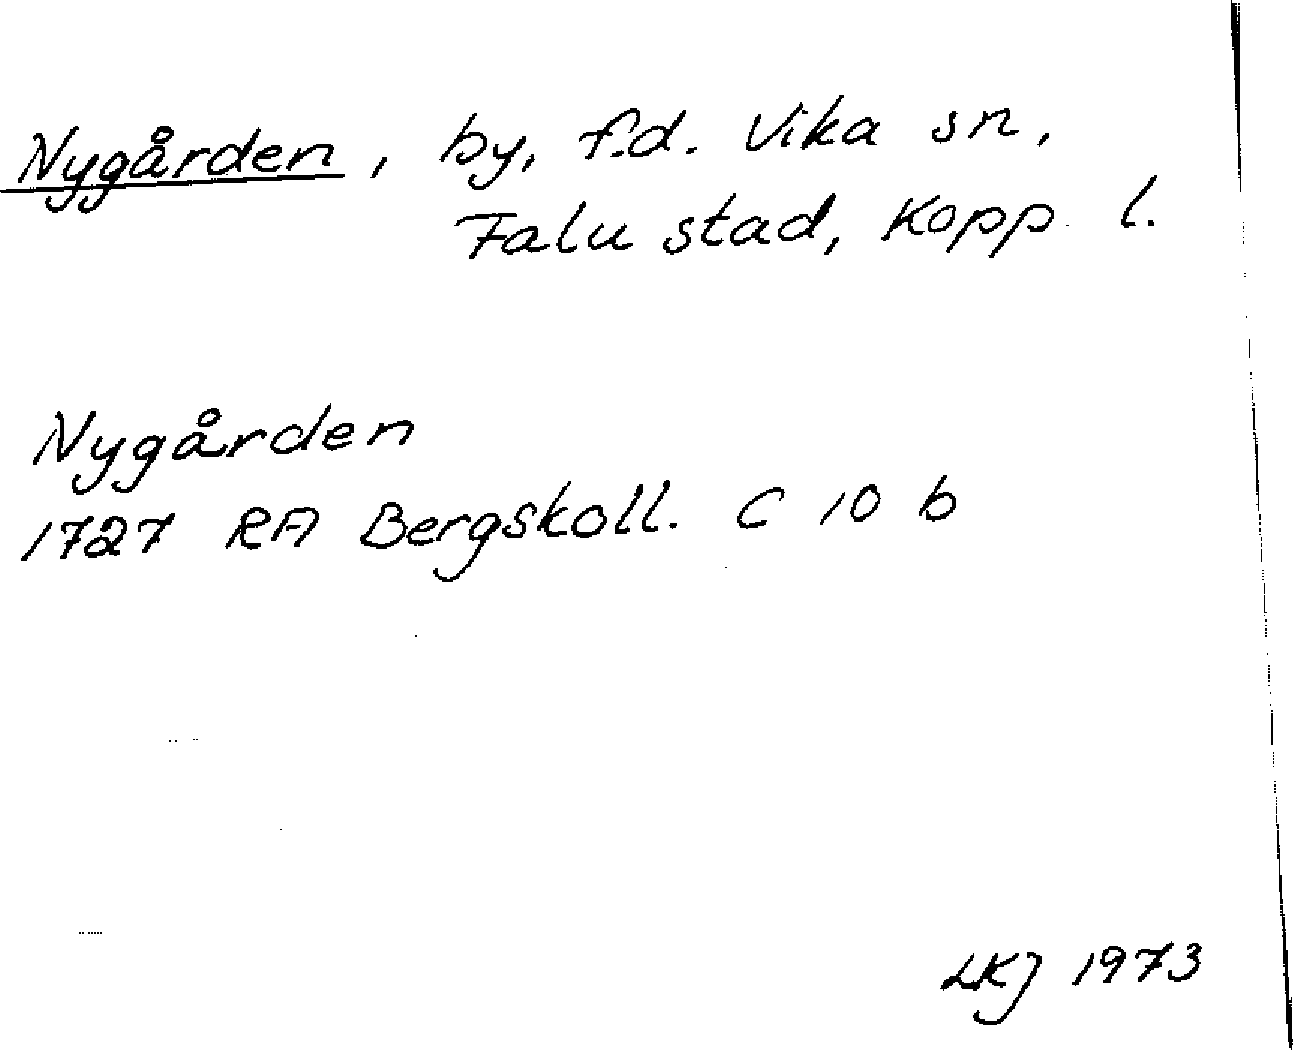 Nygården, by, f.d. Vika sn,
Falu stad, Kopp. l.
Nygården
1727 RA Bergskoll. C 10 b
LKJ 1973